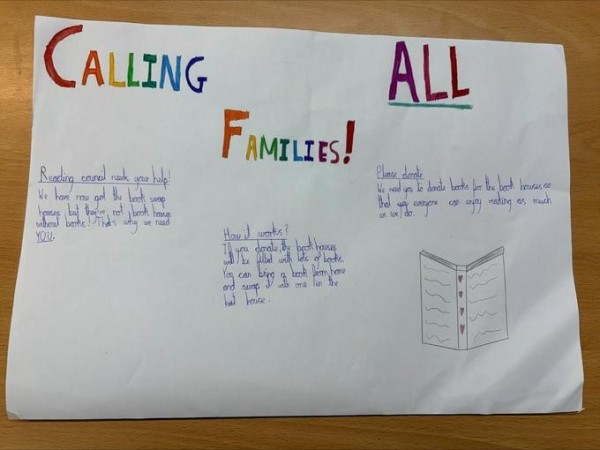 CALLING ALL
FAMILIES!
Reading council needs your help!
We have now got the book swap
houses, but they're not book houses
without books! That's why we need
YOU.
How it works?
If you donate, the book houses
will be filled with lots of books.
You can bring a book from home
and swap it with one in the
house.
Please donate
We need you to donate books for the book houses so
that everyone can enjoy reading as much
as we do.